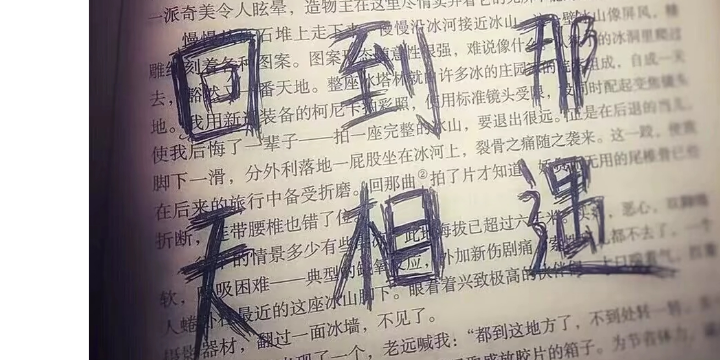 一派奇美令人眩晕，造物主在这里尽情实
石堆上走下来，慢慢沿冰河接近冰山，冰山像屏风。
雕 刻着各种图案。图案 很强，难说像什 的冰洞里爬过
去，豁然 番天地。整座冰塔林就 许多冰的庄园 组成，自成一
地。我用新 装备的柯尼卡拍彩照，使用标准镜头受限， 同时配起变焦镜头
使我后悔了一辈子——拍一座完整的冰山，要退出很远。正是在后退的当儿，
脚下一滑，分外利落地一屁股坐在冰河上，裂骨之痛随之袭来。这一跤，使我
在后来的旅行中备受折磨。回那曲②拍了片才知道， 无用的尾椎骨已经
折断，连带腰椎也错了位
的情景多少有些 此地海拔已超过六千米， 恶心，双脚
软， 吸困难——典型的缺氧反应，外加新伤剧痛， 都不去了。一个
人蜷 最近的这座冰山脚下。眼看着兴致极高的伙伴 大口喘着气，扛着
摄影器材，翻过一面冰墙，不见了。
出现了一个，老远喊我：“都到这地方了，不到处转一转，
胶片的箱子。为节省体力，
回到那
天相遇